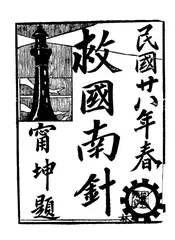 民國廿八年春
救國南針
甯坤題